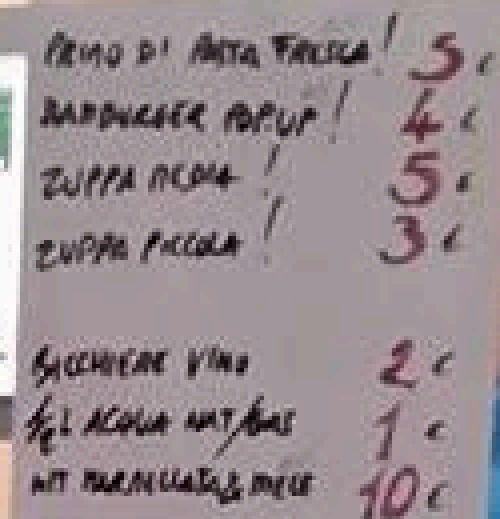 PRIMO DI PASTA FRESCA! 5 €
HAMBURGER POP-UP! 4 €
ZUPPA MEDIA! 5 €
ZUPPA PICCOLA! 3 €
BICCHIERE VINO 2 €
1/2 L ACQUA NAT/GAS 1 €
MARMELLATA & MIELE 10 €